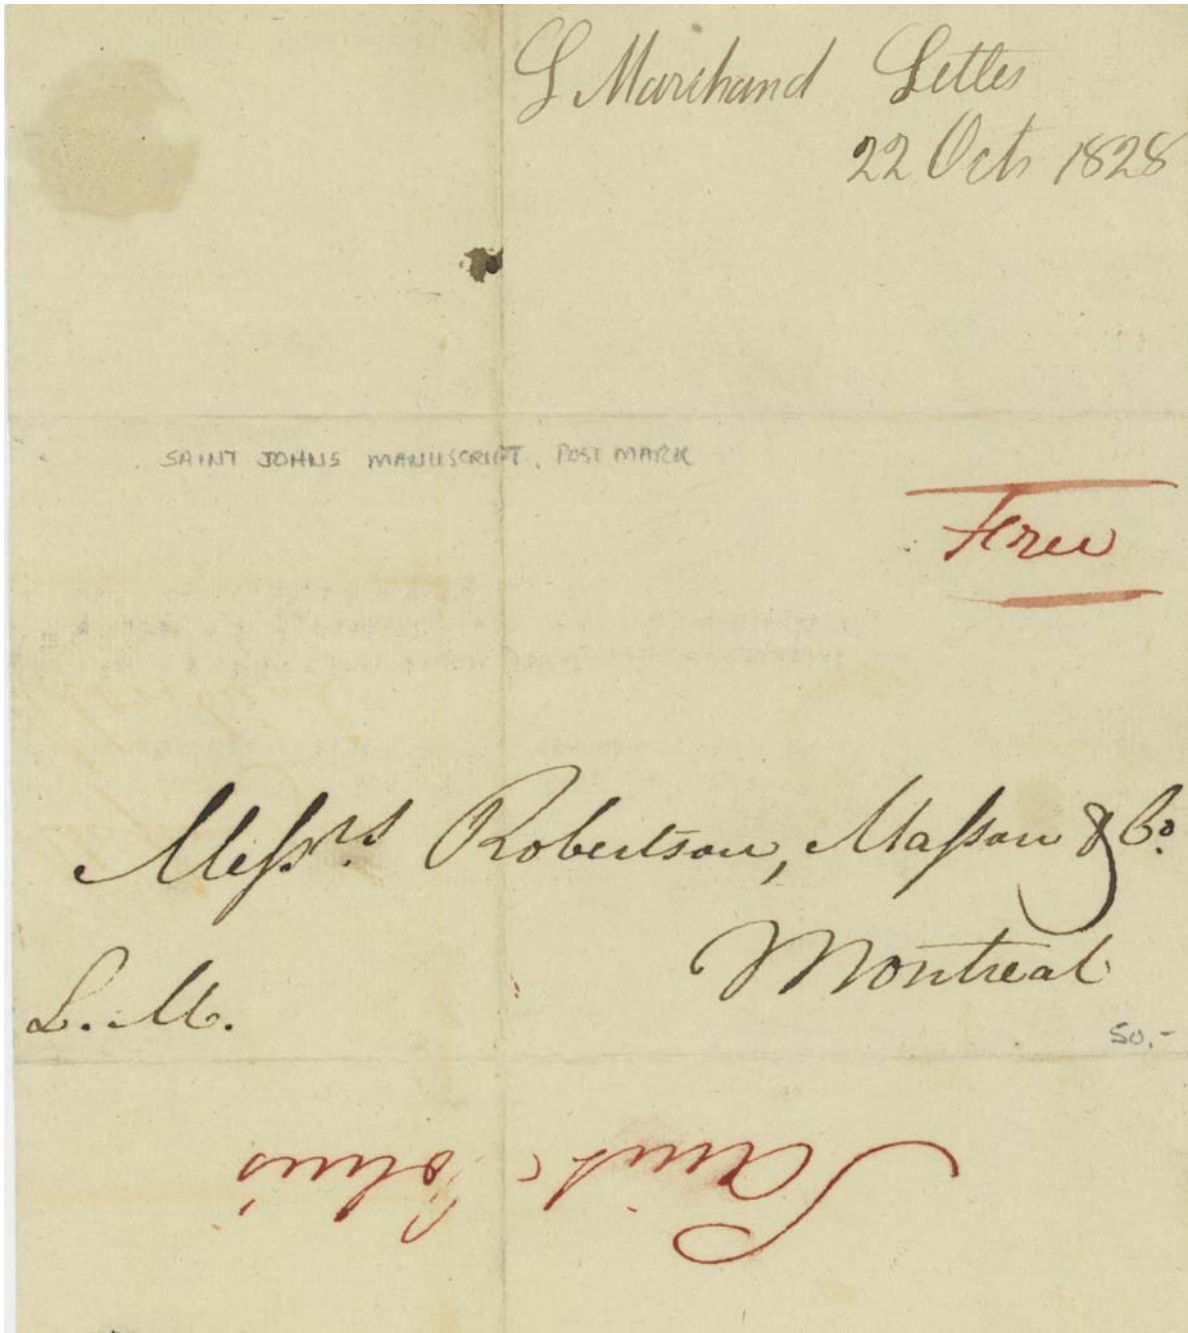 L Marchand Letter
22 Octr 1828
SAINT JOHNS MANUSCRIPT. POST MARK
Free
Messrs Robertson, Masson & Co.
Montreal
L. M.
50.-
Saint Johns